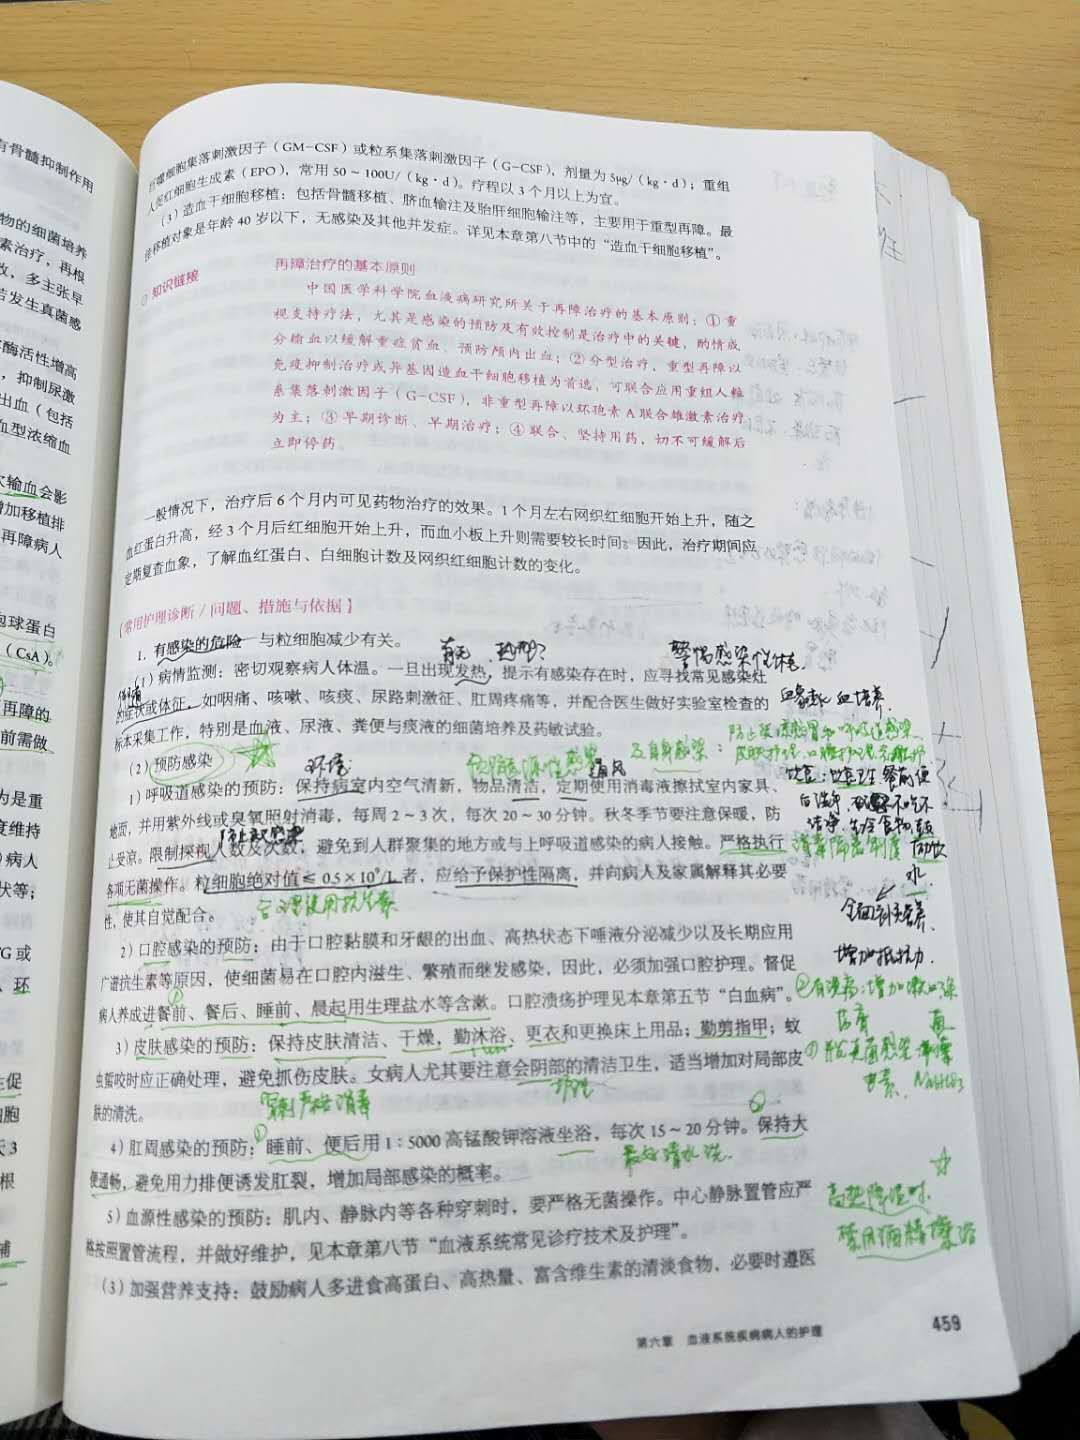 有骨髓抑制作用
物的细菌培养
素治疗，再根
效，多主张早
若发生真菌感
酶活性增高
，抑制尿激
出血（包括
血型浓缩血
次输血会影
增加移植排
再障病人
胞球蛋白
（CsA）。
再障的
前需做
为是重
度维持
病人
状等；
G或
、环
促
胞
天3
根
辅
巨噬细胞集落刺激因子（GM-CSF）或粒系集落刺激因子（G-CSF），剂量为5μg/（kg·d）；重组
人促红细胞生成素（EPO），常用50～100U/（kg·d）。疗程以3个月以上为宜。
（3）造血干细胞移植：包括骨髓移植、脐血输注及胎肝细胞输注等，主要用于重型再障。最
佳移植对象是年龄40岁以下，无感染及其他并发症。详见本章第八节中的“造血干细胞移植”。
知识链接
再障治疗的基本原则
中国医学科学院血液病研究所关于再障治疗的基本原则：①重
视支持疗法，尤其是感染的预防及有效控制是治疗中的关键，酌情成
分输血以缓解重症贫血、预防颅内出血；②分型治疗，重型再障以
免疫抑制治疗或异基因造血干细胞移植为首选，可联合应用重组人粒
系集落刺激因子（G-CSF），非重型再障以环孢素A联合雄激素治疗
为主；③早期诊断、早期治疗；④联合、坚持用药，切不可缓解后
立即停药。
一般情况下，治疗后6个月内可见药物治疗的效果。1个月左右网织红细胞开始上升，随之
血红蛋白升高，经3个月后红细胞开始上升，而血小板上升则需要较长时间。因此，治疗期间应
定期复查血象，了解血红蛋白、白细胞计数及网织红细胞计数的变化。
【常用护理诊断/问题、措施与依据】
1. 有感染的危险 与粒细胞减少有关。
有无 热型？ 警惕感染性休克.
（1）病情监测：密切观察病人体温。一旦出现发热，提示有感染存在时，应寻找常见感染灶
的症状或体征，如咽痛、咳嗽、咳痰、尿路刺激征、肛周疼痛等，并配合医生做好实验室检查的
血培养.
标本采集工作，特别是血液、尿液、粪便与痰液的细菌培养及药敏试验。
（2）预防感染
环境
通风
及自身感染：
1）呼吸道感染的预防：保持病室内空气清新，物品清洁，定期使用消毒液擦拭室内家具、
地面，并用紫外线或臭氧照射消毒，每周2～3次，每次20～30分钟。秋冬季节要注意保暖，防
止受凉。限制探视人数及次数，避免到人群聚集的地方或与上呼吸道感染的病人接触。严格执行
消毒隔离制度
各项无菌操作。粒细胞绝对值≤0.5×10⁹/L者，应给予保护性隔离，并向病人及家属解释其必要
性，使其自觉配合。
合理使用抗生素
增加抵抗力.
2）口腔感染的预防：由于口腔黏膜和牙龈的出血、高热状态下唾液分泌减少以及长期应用
广谱抗生素等原因，使细菌易在口腔内滋生、繁殖而继发感染，因此，必须加强口腔护理。督促
病人养成进餐前、餐后、睡前、晨起用生理盐水等含漱。口腔溃疡护理见本章第五节“白血病”。
3）皮肤感染的预防：保持皮肤清洁、干燥，勤沐浴、更衣和更换床上用品；勤剪指甲；蚊
虫蜇咬时应正确处理，避免抓伤皮肤。女病人尤其要注意会阴部的清洁卫生，适当增加对局部皮
肤的清洗。
穿刺严格消毒
护理
NaHCO3
4）肛周感染的预防：睡前、便后用1∶5000高锰酸钾溶液坐浴，每次15～20分钟。保持大
便通畅，避免用力排便诱发肛裂，增加局部感染的概率。
最好清水洗.
5）血源性感染的预防：肌内、静脉内等各种穿刺时，要严格无菌操作。中心静脉置管应严
格按照置管流程，并做好维护，见本章第八节“血液系统常见诊疗技术及护理”。
高热降温时.
禁用酒精擦浴
（3）加强营养支持：鼓励病人多进食高蛋白、高热量、富含维生素的清淡食物，必要时遵医
第六章 血液系统疾病病人的护理 459